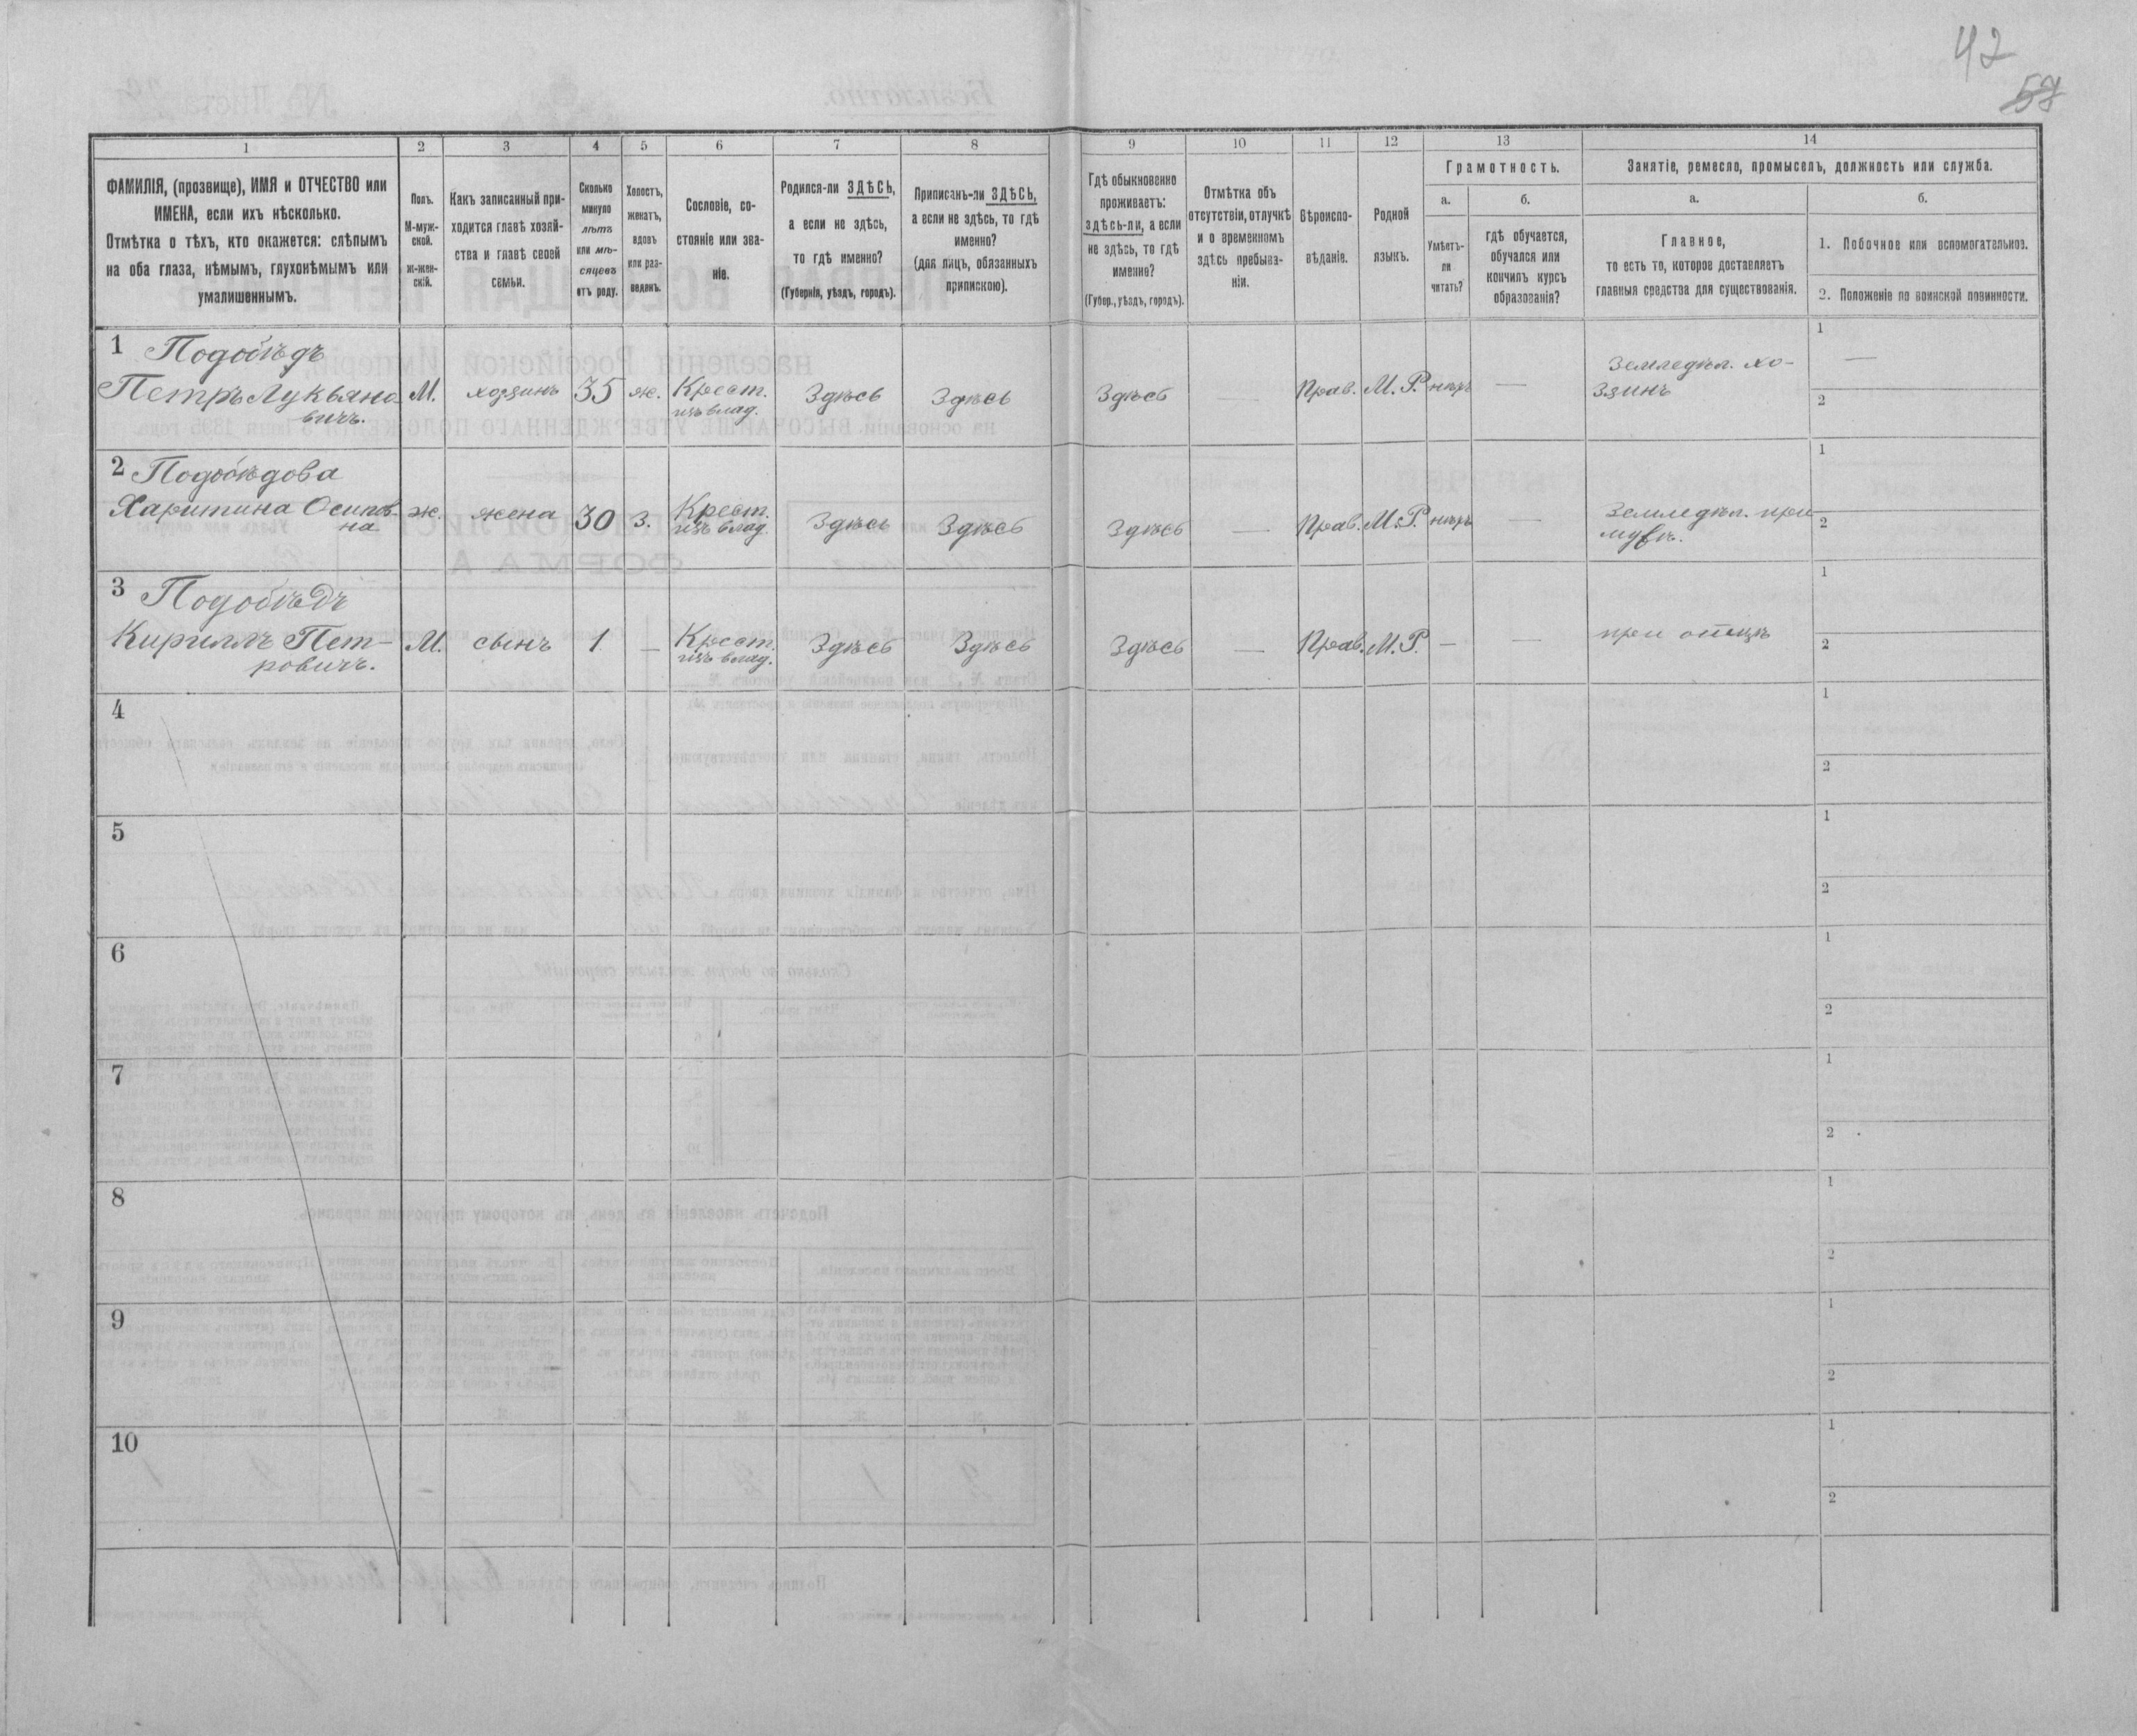 42
57
1
2
3
4
5
6
7
8
9
10
11
12
13
14
ФАМИЛІЯ, (прозвище), ИМЯ и ОТЧЕСТВО или
ИМЕНА, если ихъ нѣсколько.
Отмѣтка о тѣхъ, кто окажется: слѣпымъ
на оба глаза, нѣмымъ, глухонѣмымъ или
умалишеннымъ.
Полъ.
М-муж-
ской.
ж-жен-
скій.
Какъ записанный при-
ходится главѣ хозяй-
ства и главѣ своей
семьи.
Сколько
минуло
лѣтъ
или мѣ-
сяцевъ
отъ роду.
Холостъ,
женатъ,
вдовъ
или раз-
веденъ.
Сословіе, со-
стояніе или зва-
ніе.
Родился-ли ЗДѢСЬ,
а если не здѣсь,
то гдѣ именно?
(Губернія, уѣздъ, городъ).
Приписанъ-ли ЗДѢСЬ,
а если не здѣсь, то гдѣ
именно?
(для лицъ, обязанныхъ
припискою).
Гдѣ обыкновенно
проживаетъ:
здѣсь-ли, а если
не здѣсь, то гдѣ
именно?
(Губер., уѣздъ, городъ).
Отмѣтка объ
отсутствіи, отлучкѣ
и о временномъ
здѣсь пребыва-
ніи.
Вѣроиспо-
вѣданіе.
Родной
языкъ.
Грамотность.
а.
Умѣетъ-
ли
читать?
б.
гдѣ обучается,
обучался или
кончилъ курсъ
образованія?
Занятіе, ремесло, промыселъ, должность или служба.
а.
Главное,
то есть то, которое доставляетъ
главныя средства для существованія.
б.
1. Побочное или вспомогательное.
2. Положеніе по воинской повинности.
1 Подобѣдъ
Петръ Лукьяно-
вичъ.
М. хозяинъ 35 ж. Крест.
изъ влад.
Здѣсь Здѣсь Здѣсь — Прав. М.Р. нѣтъ —
Земледѣл. хо-
зяинъ
1 —
2
2 Подобѣдова
Харитина Осипов-
на
ж. жена 30 з. Крест.
изъ влад.
Здѣсь Здѣсь Здѣсь — Прав. М.Р. нѣтъ —
Земледѣл. при
мужѣ.
1
2
3 Подобѣдъ
Кириллъ Пет-
ровичъ.
М. сынъ 1 — Крест.
изъ влад.
Здѣсь Здѣсь Здѣсь — Прав. М.Р. — —
при отцѣ
1
2
4
1
2
5
1
2
6
1
2
7
1
2
8
1
2
9
1
2
10
1
2